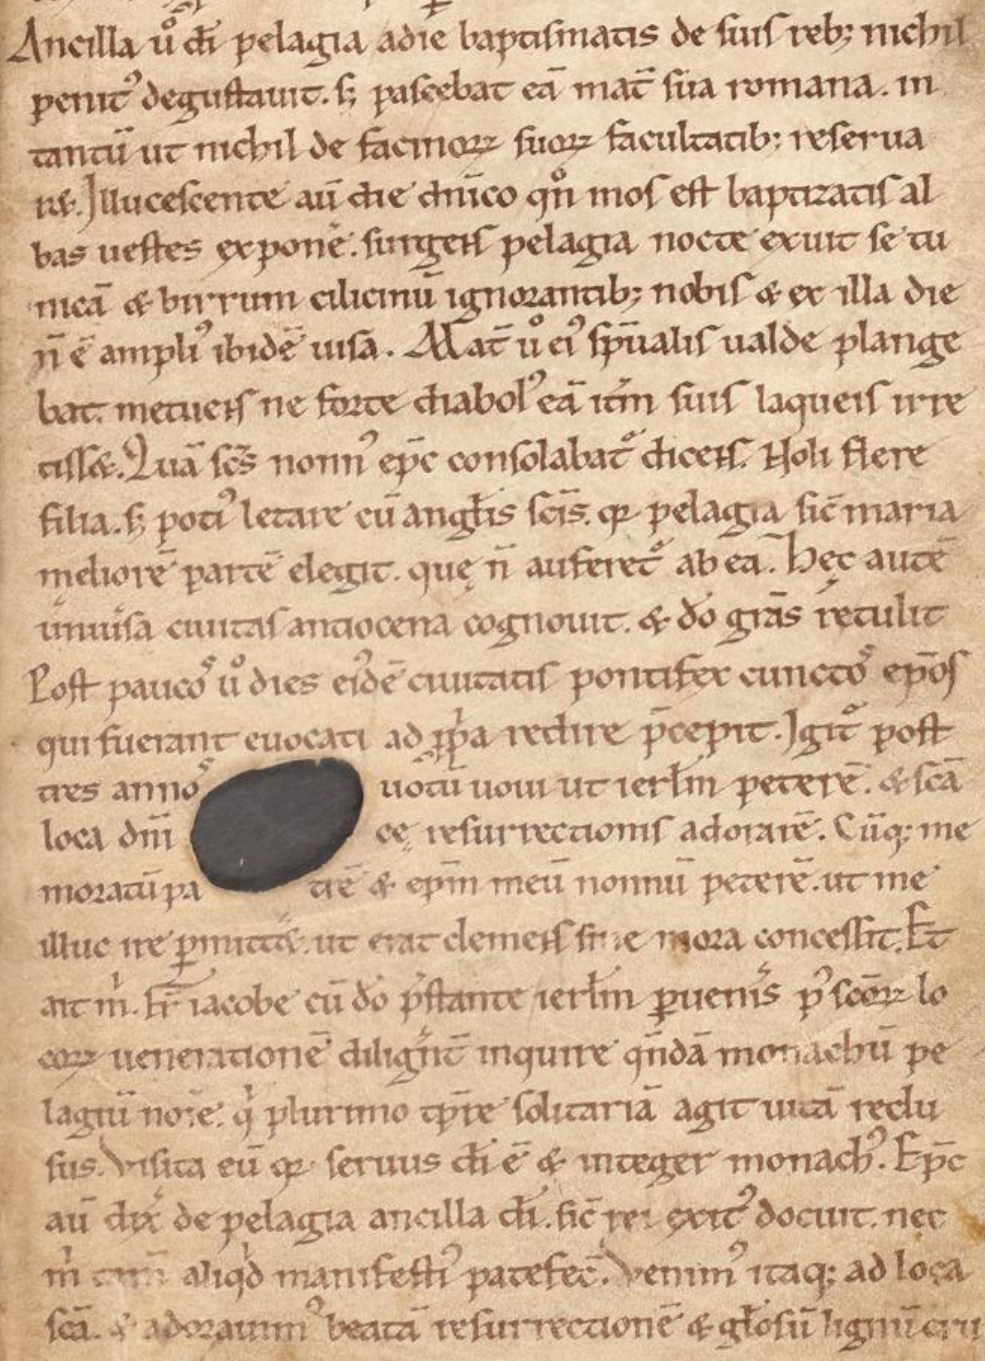 Ancilla ů dī pelagia a die baptismatis de suis reb; nichil
penit᾽ degustauit. s; pascebat eā mat̄ sua romana. in
tantū ut nichil de facinoꝝ suoꝝ facultatib; reserua
ret. Illucescente aū die dnīco qn̊ mos est baptizatis al
bas uestes exponē. surgens pelagia nocte exuit se tu
nicā & birrum cilicinū ignorantib; nobis & ex illa die
n̄ ē ampli᾽ ibidē uisa. Mat̄ ů ei᾽ sp̄ualis ualde plange
bat. metuens ne forte diabol᾽ eā itm̄ suis laqueis irre
tisset. Quā scs̄ nonn᾽ ep̄c consolabat᾽ dicens. Noli flere
filia. s; poti᾽ letare cū angłis scīs. qꝛ pelagia sic̄ maria
meliorē partē elegit. quę n̄ auferet᾽ ab ea. Hęc autē
uniuͥsa ciuitas antiocena cognouit. & dō grās retulit
Post pauco᾽ ů dies ei᾽dē ciuitatis pontifex cuncto᾽ ep̄os
qui fuerant euocati ad ꝓpͥa redire p̄cepit. Igit᾽ post
tres anno᾽ uotū uoui ut ierłm peterē. & scā
loca dnī cę resurrectionis adorarē. Cūq; me
moratū pa trē & ep̄m meū nonnū peterē. ut me
illuc ire ꝑmittet᾽. ut erat clemens sine mora concessit. Et
ait m̍. Fr̄ iacobe cū dō p̍stante ierłm ꝑueniͥs p᾽ scōꝝ lo
coꝝ uenerationē diligͥnt̄ inquire qn̄dā monachū pe
lagiū noīe. q̍ plurimo tp̄re solitariā agit uitā reclu
sus. Visita eū qꝛ seruus dī ē & integer monach᾽. Ep̄c
aū dix̍ de pelagia ancilla dī. sic̄ rei exit᾽ docuit. nec
m̍ aliqd̍ manifesti᾽ patefec̄. Venim᾽ itaq; ad loca
scā. & adorauim᾽ beatā resurrectionē & głosū lignū cru